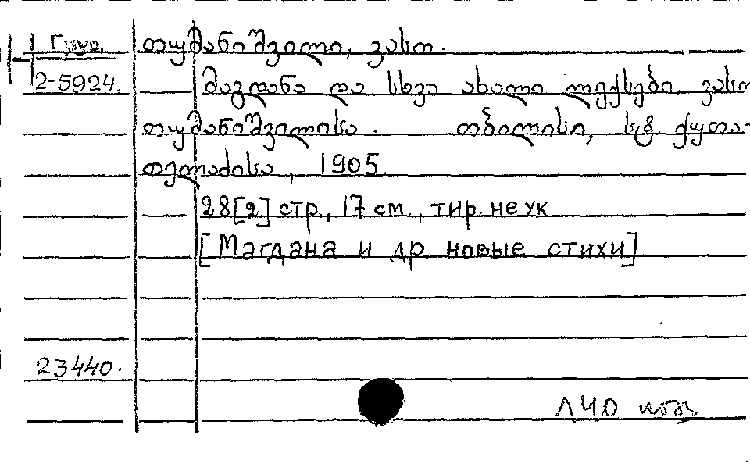 Груз. თუმანიშვილი, ვასო.
2-5924. მაგდანა და სხვა ახალი ლექსები ვასო
თუმანიშვილისა. თბილისი, სტ. ქუთა-
თელაძისა, 1905
28[2] стр., 17 см., тир. не ук
[Магдана и др новые стихи]
23440.
ЛЧО